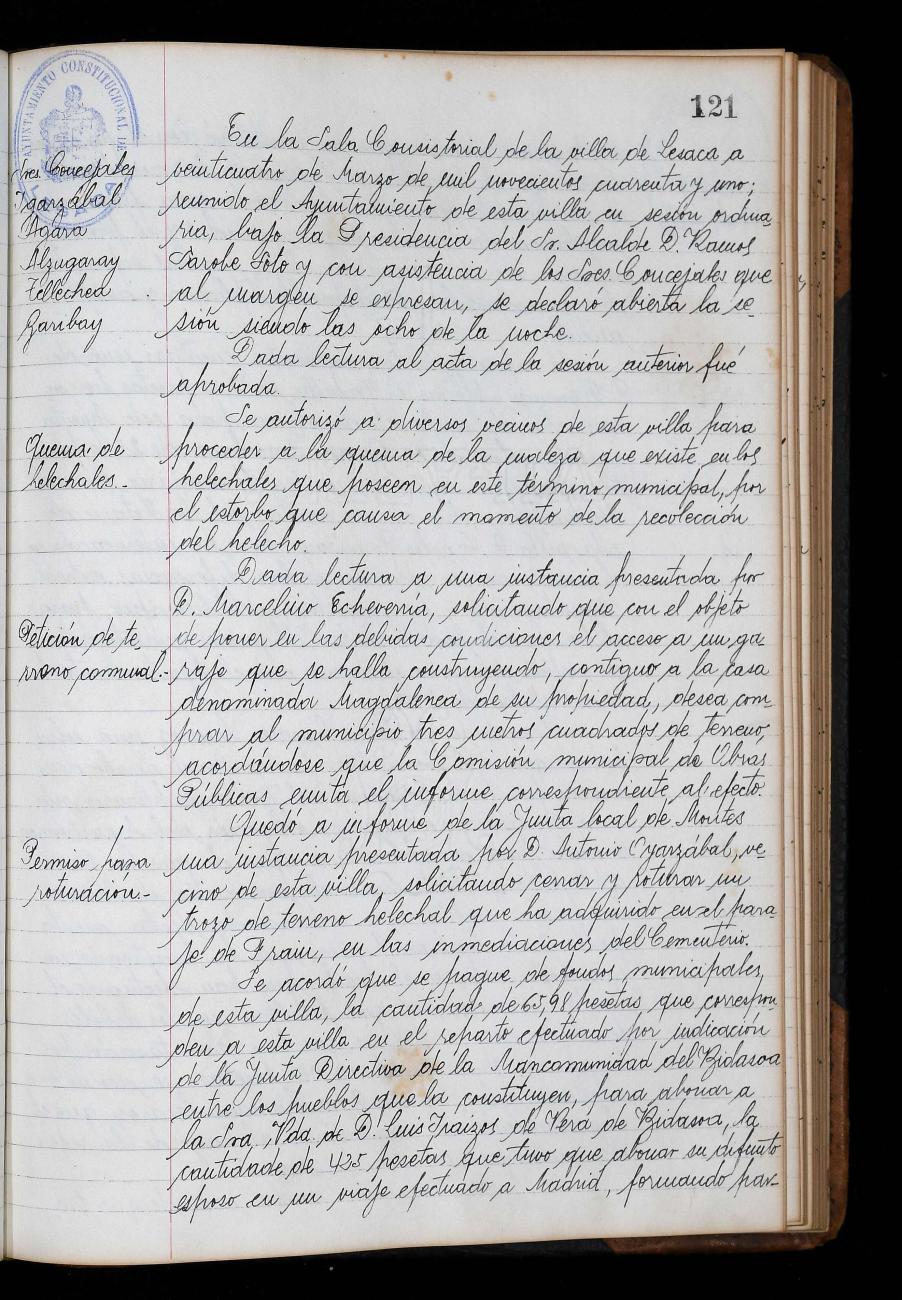 121
AYUNTAMIENTO CONSTITUCIONAL DE
En la Sala Consistorial de la villa de Lesaca a
veinticuatro de Marzo de mil novecientos cuarenta y uno;
reunido el Ayuntamiento de esta villa en sesión ordina-
ria, bajo la Presidencia del Sr. Alcalde D. Ramos
Sarobe Soto y con asistencia de los Sres. Concejales que
al margen se expresan, se declaró abierta la se-
sión siendo las ocho de la noche.
Sres. Concejales
Igarzábal
Agara
Alzugaray
Tellechea
Garibay
Dada lectura al acta de la sesión anterior fué
aprobada.
Quema de
helechales.-
Se autorizó a diversos vecinos de esta villa para
proceder a la quema de la maleza que existe en los
helechales que poseen en este término municipal, por
el estorbo que causa el momento de la recolección
del helecho.
Petición de te-
rreno comunal.-
Dada lectura a una instancia presentada por
D. Marcelino Echeverría, solicitando que con el objeto
de poner en las debidas condiciones el acceso a un ga-
raje que se halla construyendo, contiguo a la casa
denominada Magdalenea de su propiedad, desea com-
prar al municipio tres metros cuadrados de terreno,
acordándose que la Comisión municipal de Obras
Públicas emita el informe correspondiente al efecto.
Permiso para
roturación.-
Quedó a informe de la Junta local de Montes
una instancia presentada por D. Antonio Oyarzábal, ve-
cino de esta villa, solicitando cerrar y roturar un
trozo de terreno helechal que ha adquirido en el para-
je de Frain, en las inmediaciones del Cementerio.
Se acordó que se pague de fondos municipales,
de esta villa, la cantidad de 65,98 pesetas que correspon-
den a esta villa en el reparto efectuado por indicación
de la Junta Directiva de la Mancomunidad del Bidasoa
entre los pueblos que la constituyen, para abonar a
la Sra. Vda. de D. Luis Iraizos de Vera de Bidasoa, la
cantidade de 425 pesetas que tuvo que abonar su difunto
esposo en un viaje efectuado a Madrid, formando par-